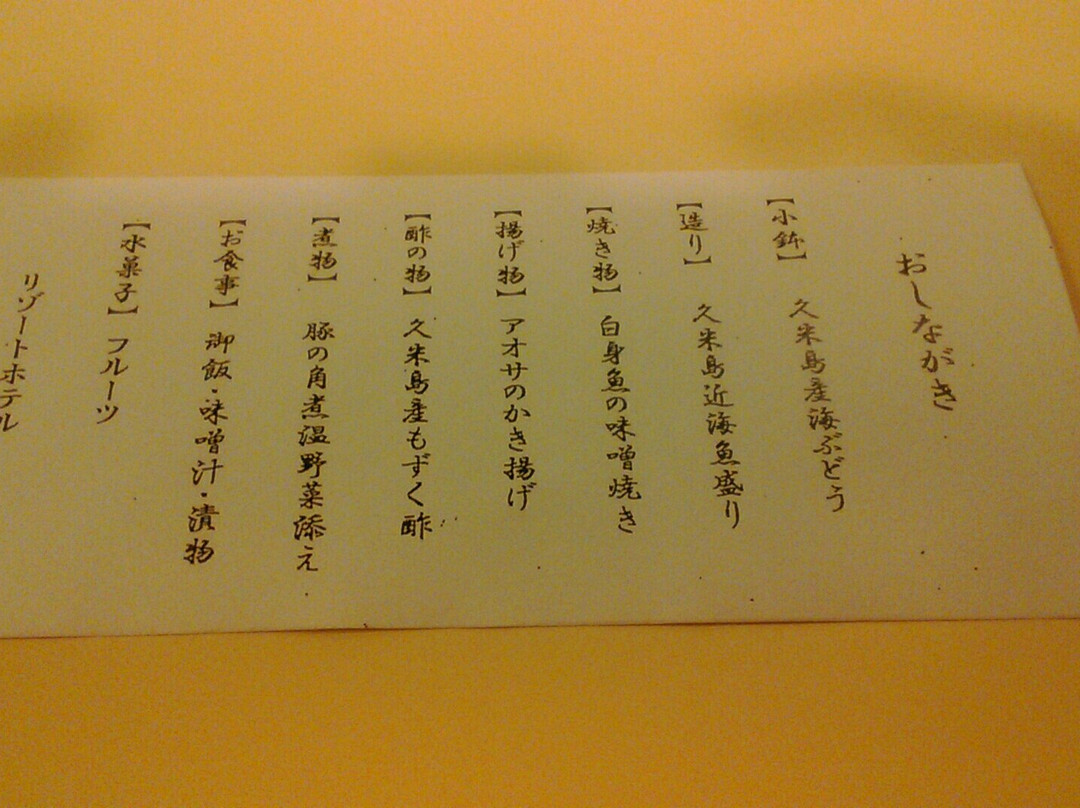 おしながき
【小鉢】 久米島産海ぶどう
【造り】 久米島近海魚盛り
【焼き物】 白身魚の味噌焼き
【揚げ物】 アオサのかき揚げ
【酢の物】 久米島産もずく酢
【煮物】 豚の角煮温野菜添え
【お食事】 御飯・味噌汁・漬物
【水菓子】 フルーツ
リゾートホテル